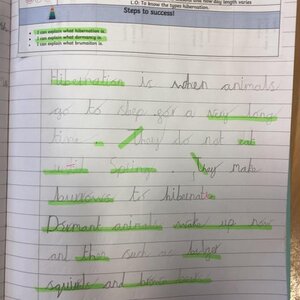 and how day length varies
L.O: To know the types hibernation.
Steps to success!
I can explain what hibernation is.
I can explain what dormancy is.
I can explain what brumation is.
Hibernation is when animals
go to sleep for a very long
time. They do not eat
until Spring. They make
burrows to hibernate
Dormant animals wake up now
and then such as badger
squirrels and brown bears